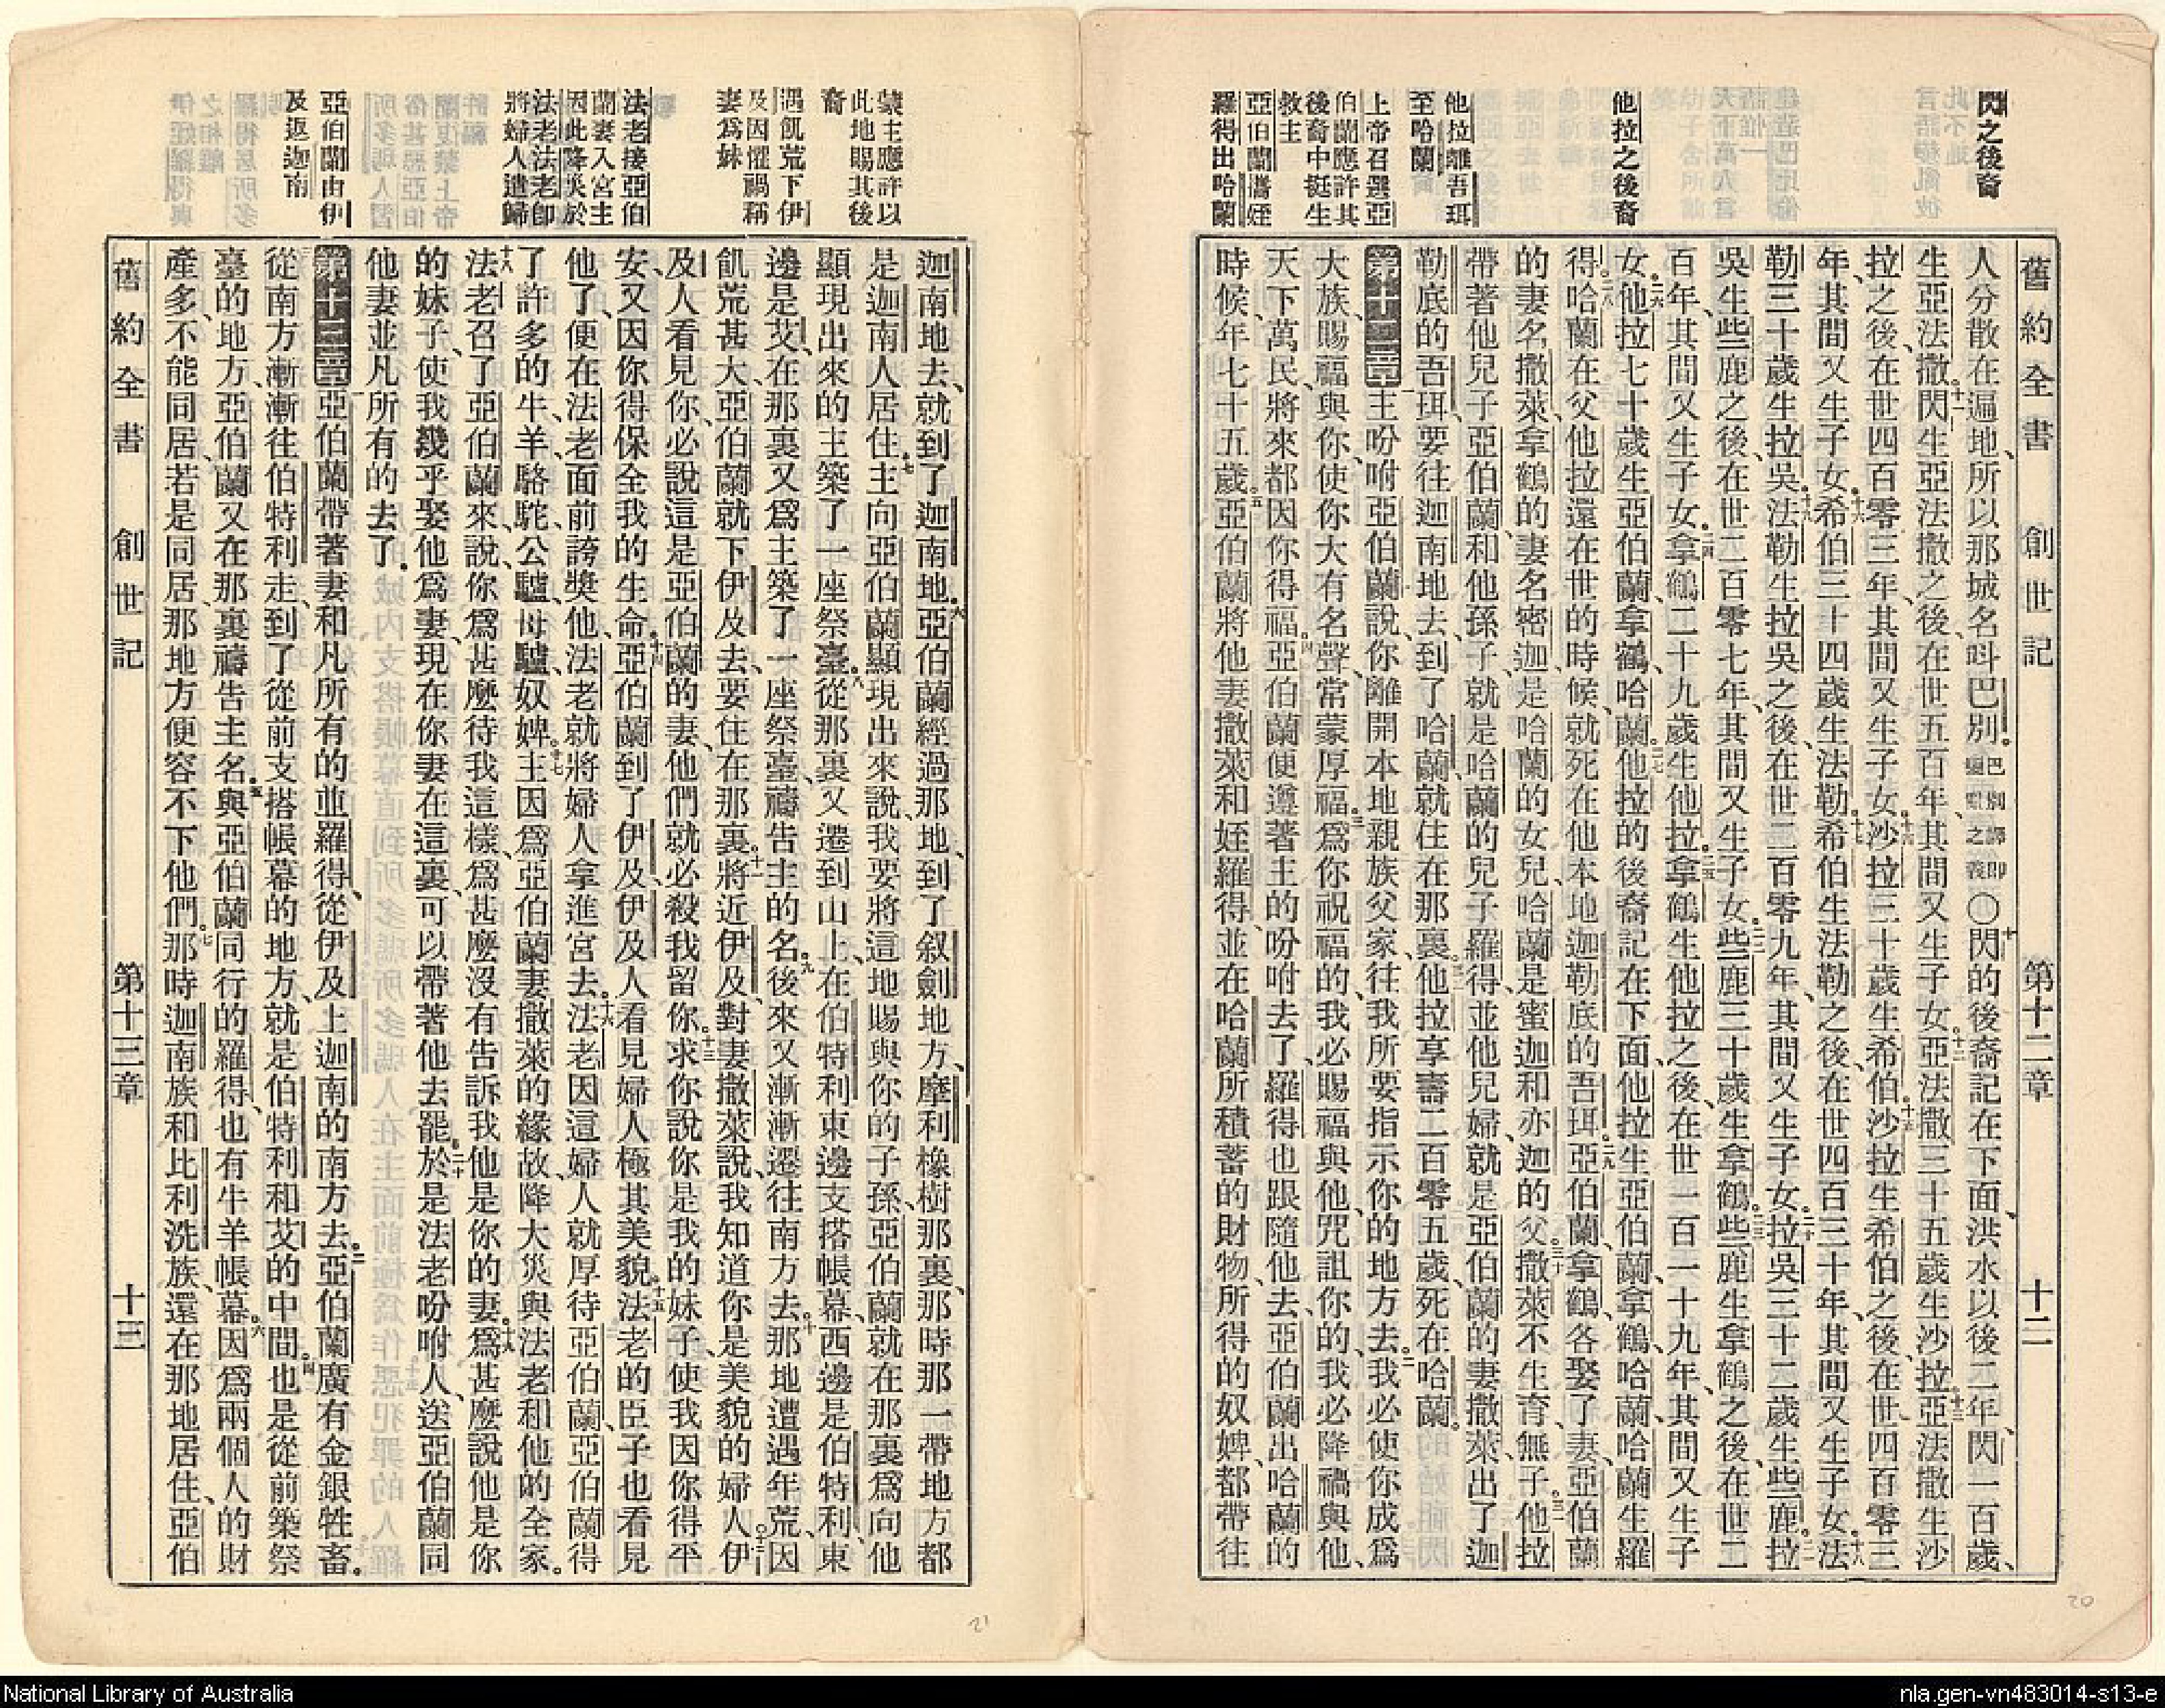 舊約全書 創世記 第十二章 十二
閃之後裔
他拉之後裔
他拉離吾珥
至哈蘭
上帝召選亞
伯蘭應許其
後裔中挺生
救主
亞伯蘭攜姪
羅得出哈蘭
人分散在遍地、所以那城名呌巴別。巴別譯即變亂之義○十閃的後裔記在下面、洪水以後二年、閃一百歲、
生亞法撒。十一閃生亞法撒之後、在世五百年、其間又生子女。十二亞法撒三十五歲生沙拉。十三亞法撒生沙
拉之後、在世四百零三年、其間又生子女。十四沙拉三十歲生希伯。十五沙拉生希伯之後、在世四百零三
年、其間又生子女。十六希伯三十四歲生法勒。十七希伯生法勒之後、在世四百三十年、其間又生子女。十八法
勒三十歲生拉吳。十九法勒生拉吳之後、在世二百零九年、其間又生子女。二十拉吳三十二歲生些鹿。二一拉
吳生些鹿之後、在世二百零七年、其間又生子女。二二些鹿三十歲生拿鶴。二三些鹿生拿鶴之後、在世二
百年、其間又生子女。二四拿鶴二十九歲生他拉。二五拿鶴生他拉之後、在世一百一十九年、其間又生子
女。二六他拉七十歲生亞伯蘭、拿鶴、哈蘭。二七他拉的後裔記在下面、他拉生亞伯蘭、拿鶴、哈蘭、哈蘭生羅
得。二八哈蘭在父他拉還在世的時候、就死在他本地迦勒底的吾珥。二九亞伯蘭、拿鶴、各娶了妻、亞伯蘭
的妻名撒萊、拿鶴的妻名密迦、是哈蘭的女兒、哈蘭是蜜迦和亦迦的父。三十撒萊不生育、無子。三一他拉
帶著他兒子亞伯蘭、和他孫子、就是哈蘭的兒子羅得、並他兒婦、就是亞伯蘭的妻撒萊、出了迦
勒底的吾珥、要往迦南地去、到了哈蘭、就住在那裏。三二他拉享壽二百零五歲、死在哈蘭。
第十二章一主吩咐亞伯蘭說、你離開本地親族父家、往我所要指示你的地方去。二我必使你成爲
大族、賜福與你、使你大有名聲、常蒙厚福。三爲你祝福的、我必賜福與他、咒詛你的、我必降禍與他、
天下萬民、將來都因你得福。四亞伯蘭便遵著主的吩咐去了、羅得也跟隨他去、亞伯蘭出哈蘭的
時候、年七十五歲。五亞伯蘭將他妻撒萊和姪羅得、並在哈蘭所積蓄的財物、所得的奴婢、都帶往
蒙主應許以
此地賜其後
裔
遇飢荒下伊
及因懼禍稱
妻爲妹
法老接亞伯
蘭妻入宮主
因此降災於
法老法老卽
將婦人遣歸
亞伯蘭由伊
及返迦南
迦南地去、就到了迦南地。六亞伯蘭經過那地、到了叙劍地方、摩利橡樹那裏、那時那一帶地方都
是迦南人居住。七主向亞伯蘭顯現出來說、我要將這地賜與你的子孫、亞伯蘭就在那裏爲向他
顯現出來的主築了一座祭臺。八從那裏又遷到山上、在伯特利東邊支搭帳幕、西邊是伯特利、東
邊是艾、在那裏又爲主築了一座祭臺、禱告主的名。九後來又漸漸遷往南方去。十那地遭遇年荒、因
飢荒甚大、亞伯蘭就下伊及去、要住在那裏。十一將近伊及、對妻撒萊說、我知道你是美貌的婦人。十二伊
及人看見你、必說這是亞伯蘭的妻、他們就必殺我留你。十三求你說你是我的妹子、使我因你得平
安、又因你得保全我的生命。十四亞伯蘭到了伊及、伊及人看見婦人極其美貌。十五法老的臣子也看見
他了、便在法老面前誇獎他、法老就將婦人拿進宮去。十六法老因這婦人就厚待亞伯蘭、亞伯蘭得
了許多的牛、羊、駱駝、公驢、母驢、奴婢。十七主因爲亞伯蘭妻撒萊的緣故、降大災與法老和他的全家。
十八法老召了亞伯蘭來、說、你爲甚麼待我這樣、爲甚麼沒有告訴我他是你的妻。十九爲甚麼說他是你
的妹子、使我幾乎娶他爲妻、現在你妻在這裏、可以帶著他去罷。二十於是法老吩咐人、送亞伯蘭同
他妻並凡所有的去了。
第十三章一亞伯蘭帶著妻和凡所有的並羅得、從伊及上迦南的南方去。二亞伯蘭廣有金銀牲畜。
三從南方漸漸往伯特利走、到了從前支搭帳幕的地方、就是伯特利和艾的中間。四也是從前築祭
臺的地方、亞伯蘭又在那裏禱告主名。五與亞伯蘭同行的羅得、也有牛羊帳幕。六因爲兩個人的財
產多、不能同居、若是同居、那地方便容不下他們。七那時迦南族和比利洗族、還在那地居住、亞伯
舊約全書 創世記 第十三章 十三
20
21
National Library of Australia
nla.gen-vn483014-s13-e